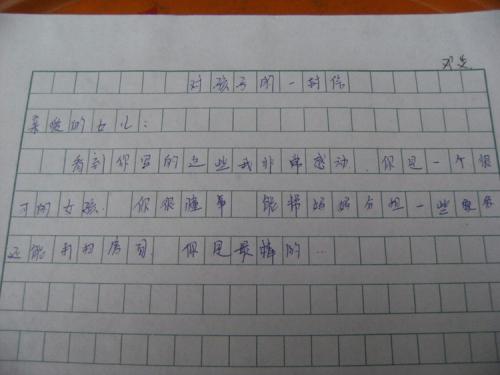 对孩子的一封信
亲爱的女儿：
看到你写的这些我非常感动.你是一个很
可的女孩.你很懂事 能帮妈妈分担一些家务
还能打扫房间.你是最棒的…